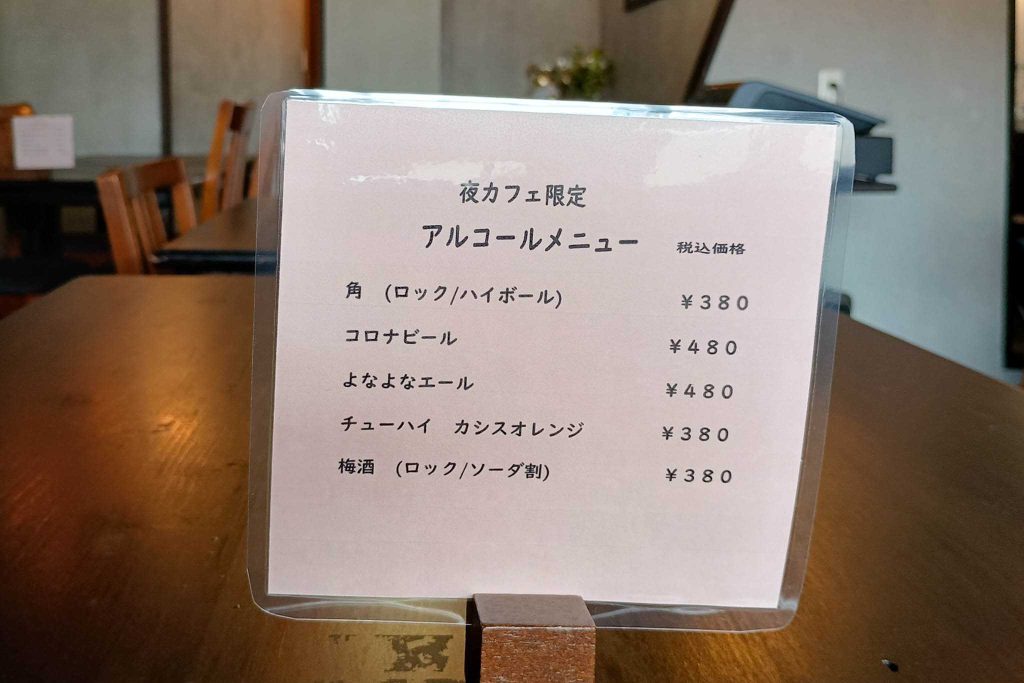 夜カフェ限定
アルコールメニュー 税込価格
角 (ロック/ハイボール) ¥380
コロナビール ¥480
よなよなエール ¥480
チューハイ カシスオレンジ ¥380
梅酒 (ロック/ソーダ割) ¥380